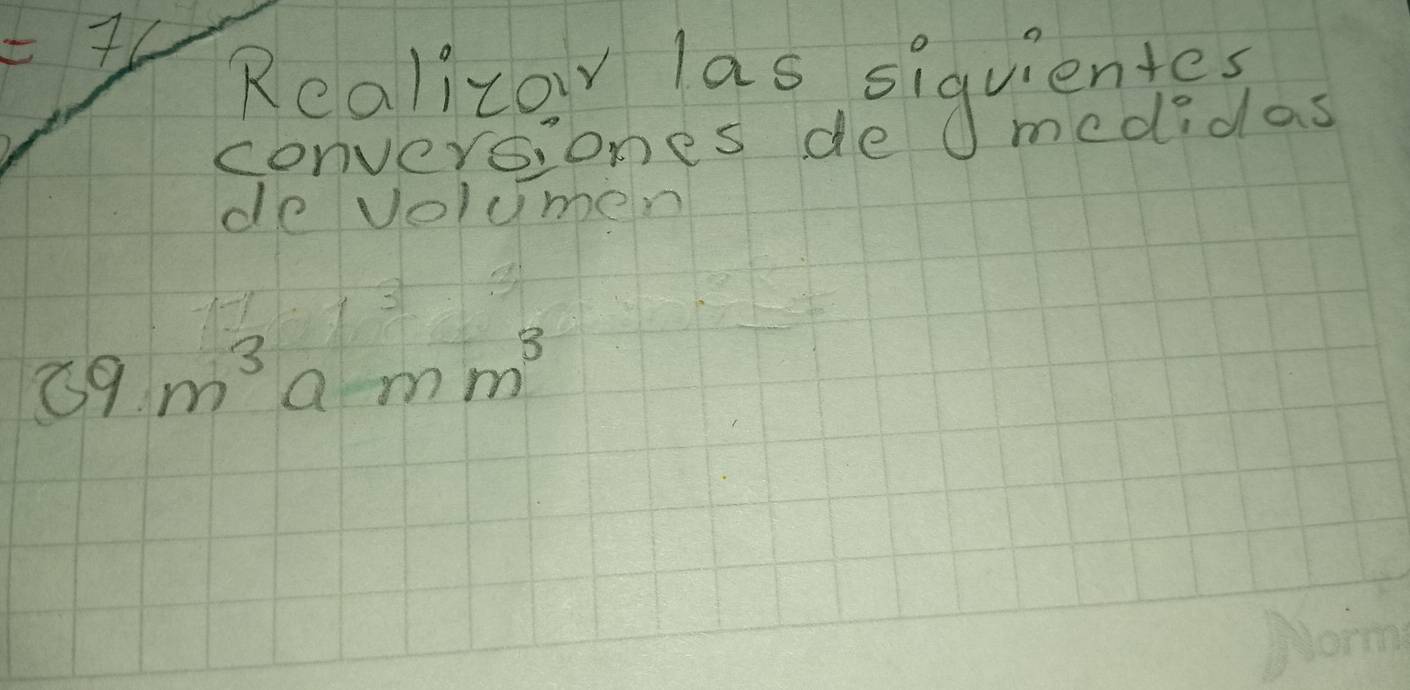 = 76
Realizar las siguientes
conversiones de medidas
de volumen
69 m³ a mm³
Norma